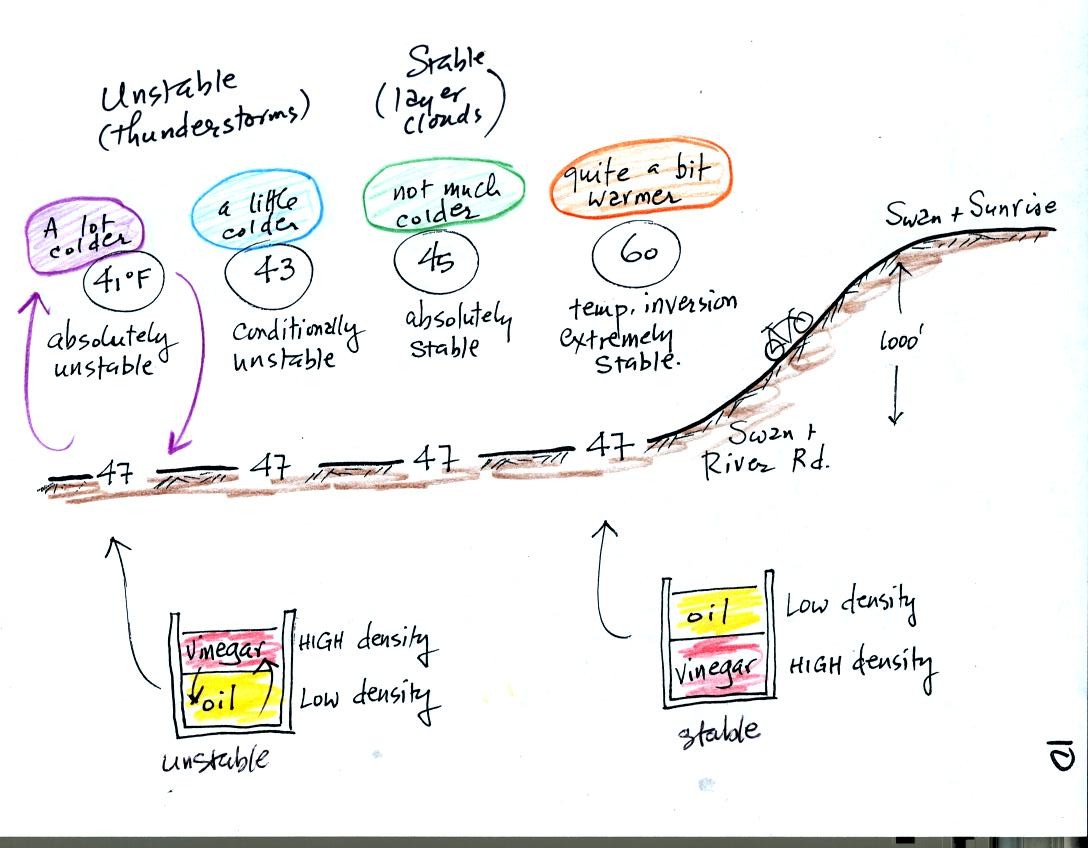 Unstable
(thunderstorms)
Stable
(layer
clouds)
A lot
colder
a little
colder
not much
colder
quite a bit
warmer
Swan + Sunrise
41°F
43
45
60
absolutely
unstable
conditionally
unstable
absolutely
stable
temp. inversion
extremely
stable.
1000'
47
47
47
47
Swan +
River Rd.
vinegar
oil
HIGH density
Low density
unstable
oil
vinegar
Low density
HIGH density
stable
10